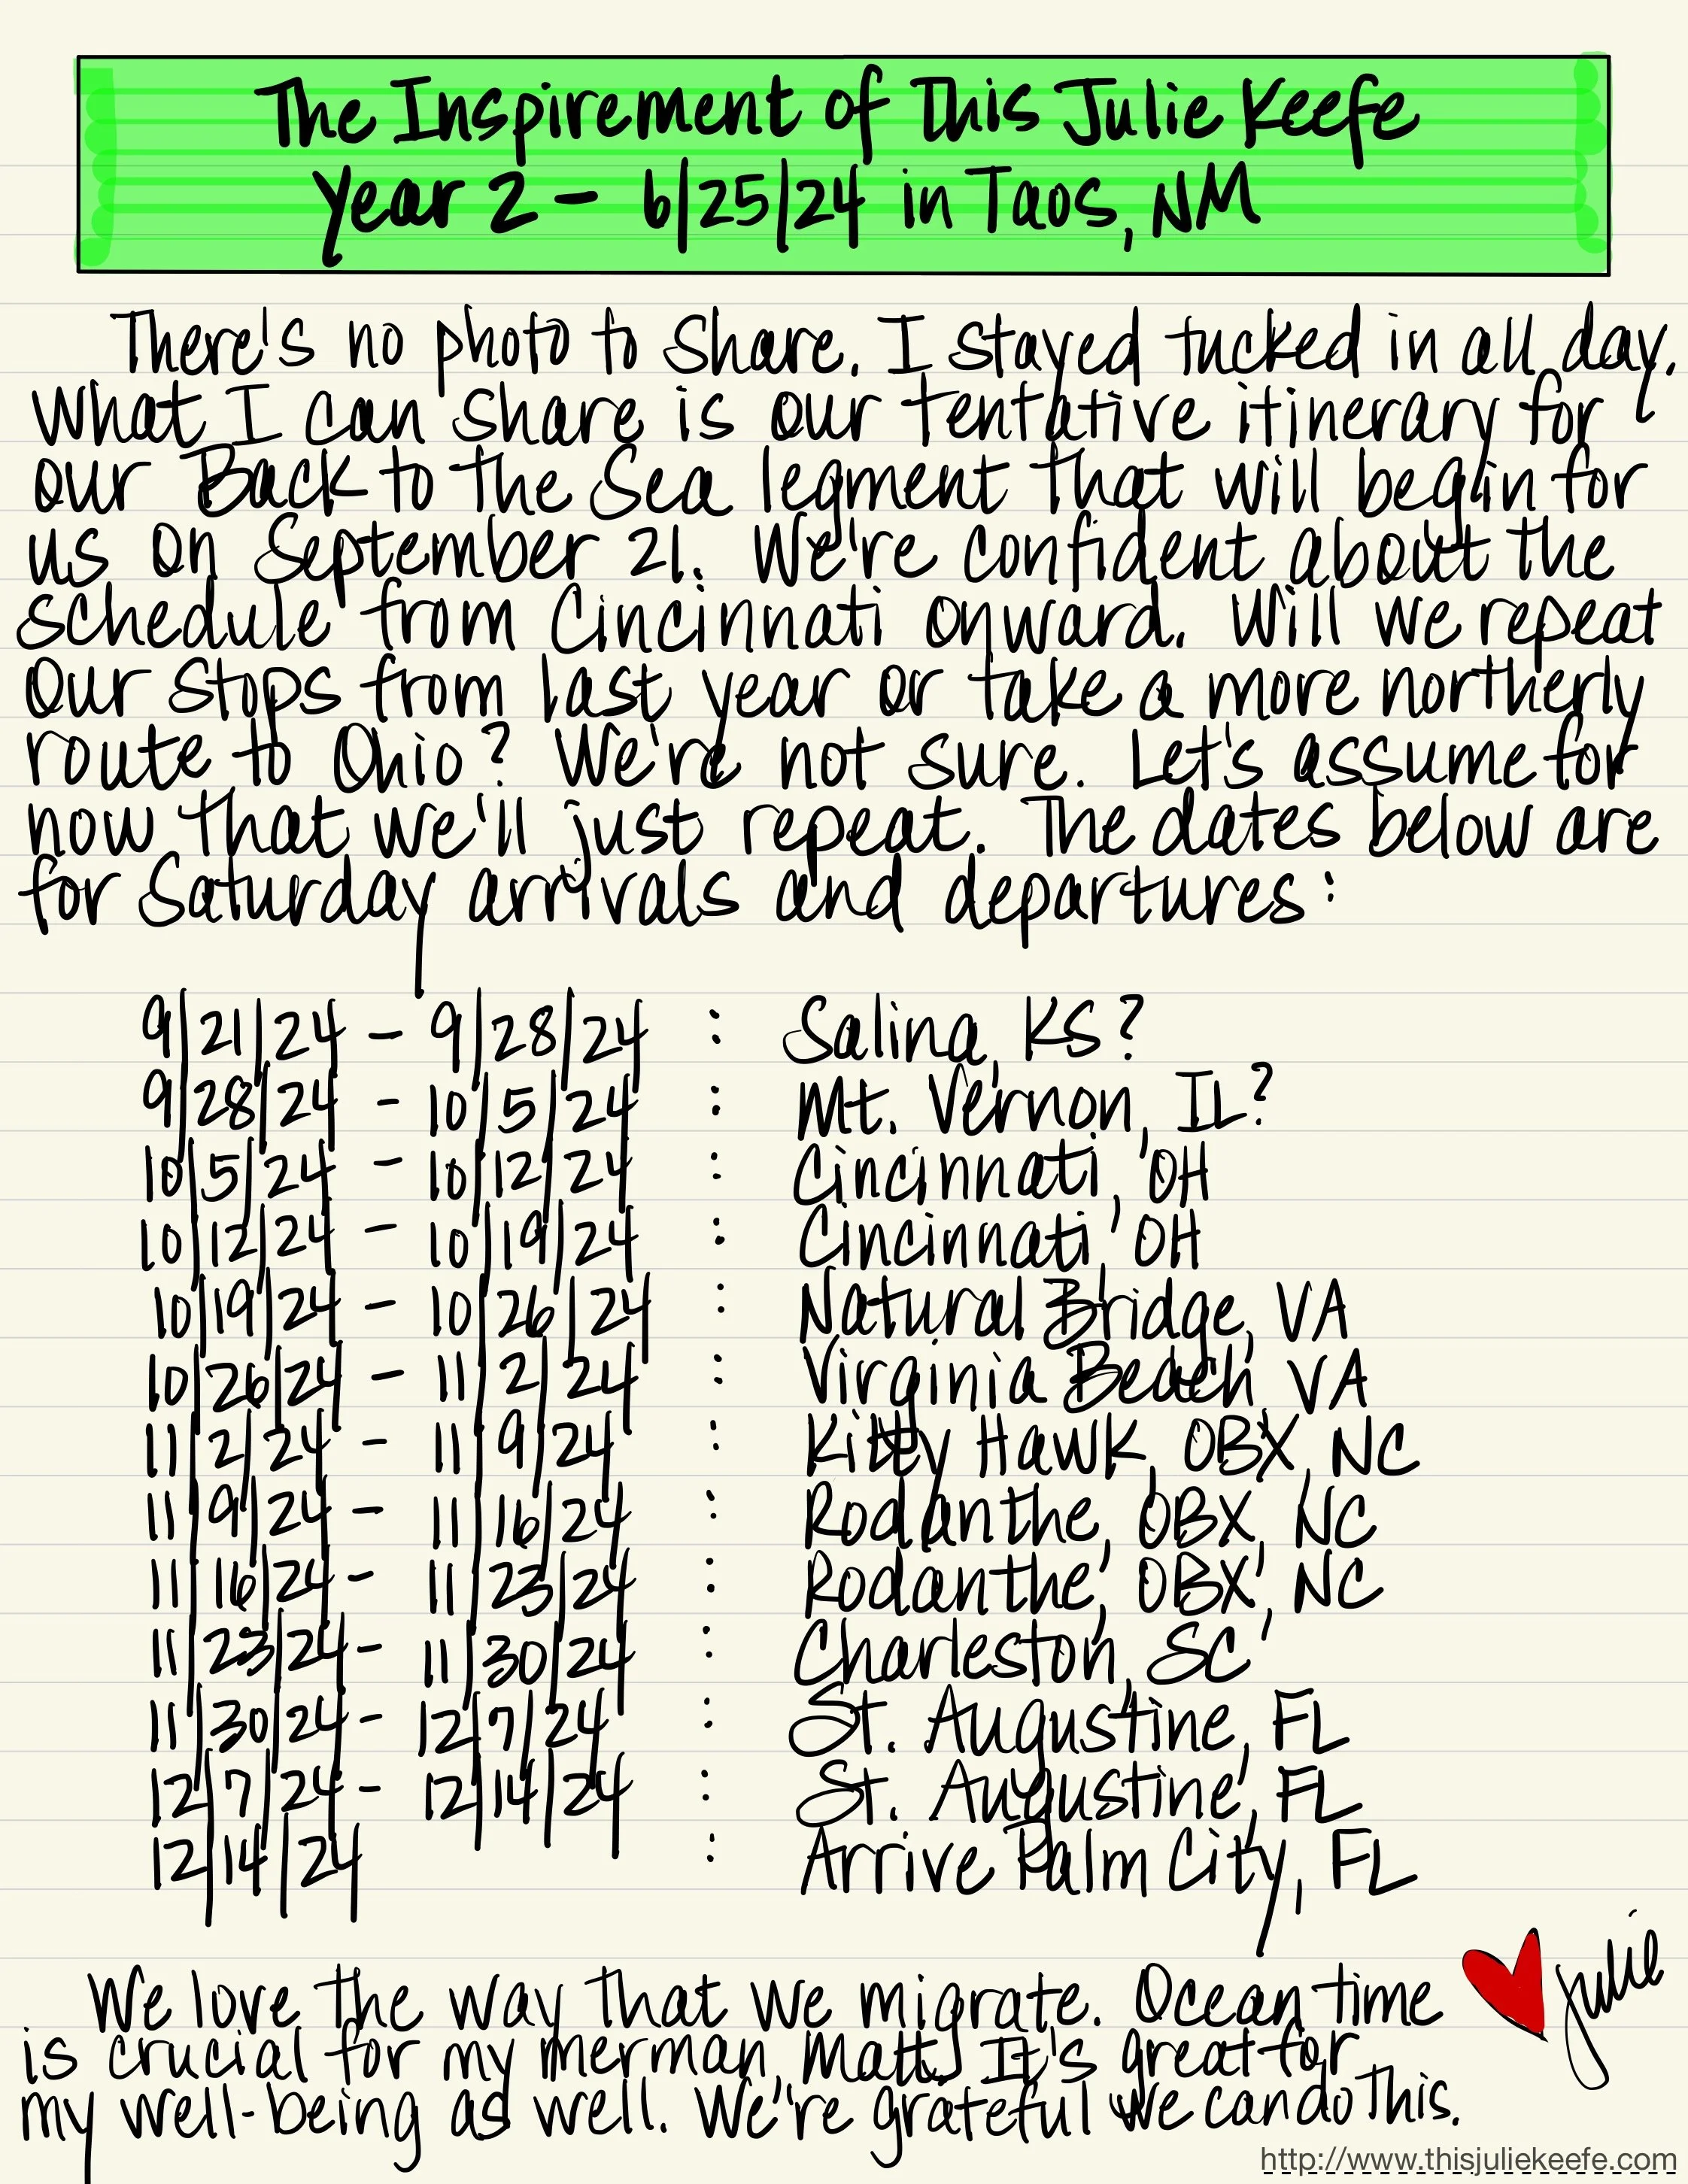 The Inspirement of This Julie Keefe
Year 2 - 6/25/24 in Taos, NM
There's no photo to share. I stayed tucked in all day.
What I can share is our tentative itinerary for
our Back to the Sea legment that will begin for
us on September 21. We're confident about the
schedule from Cincinnati onward. Will we repeat
our stops from last year or take a more northerly
route to Ohio? We're not sure. Let's assume for
now that we'll just repeat. The dates below are
for Saturday arrivals and departures:
9/21/24 - 9/28/24 : Salina, KS?
9/28/24 - 10/5/24 : Mt. Vernon, IL?
10/5/24 - 10/12/24 : Cincinnati, OH
10/12/24 - 10/19/24 : Cincinnati, OH
10/19/24 - 10/26/24 : Natural Bridge, VA
10/26/24 - 11/2/24 : Virginia Beach, VA
11/2/24 - 11/9/24 : Kitty Hawk, OBX, NC
11/9/24 - 11/16/24 : Rodanthe, OBX, NC
11/16/24 - 11/23/24 : Rodanthe, OBX, NC
11/23/24 - 11/30/24 : Charleston, SC
11/30/24 - 12/7/24 : St. Augustine, FL
12/7/24 - 12/14/24 : St. Augustine, FL
12/14/24 : Arrive Palm City, FL
We love the way that we migrate. Ocean time
is crucial for my merman, Matt. It's great for
my well-being as well. We're grateful we can do this.
Julie
http://www.thisjuliekeefe.com